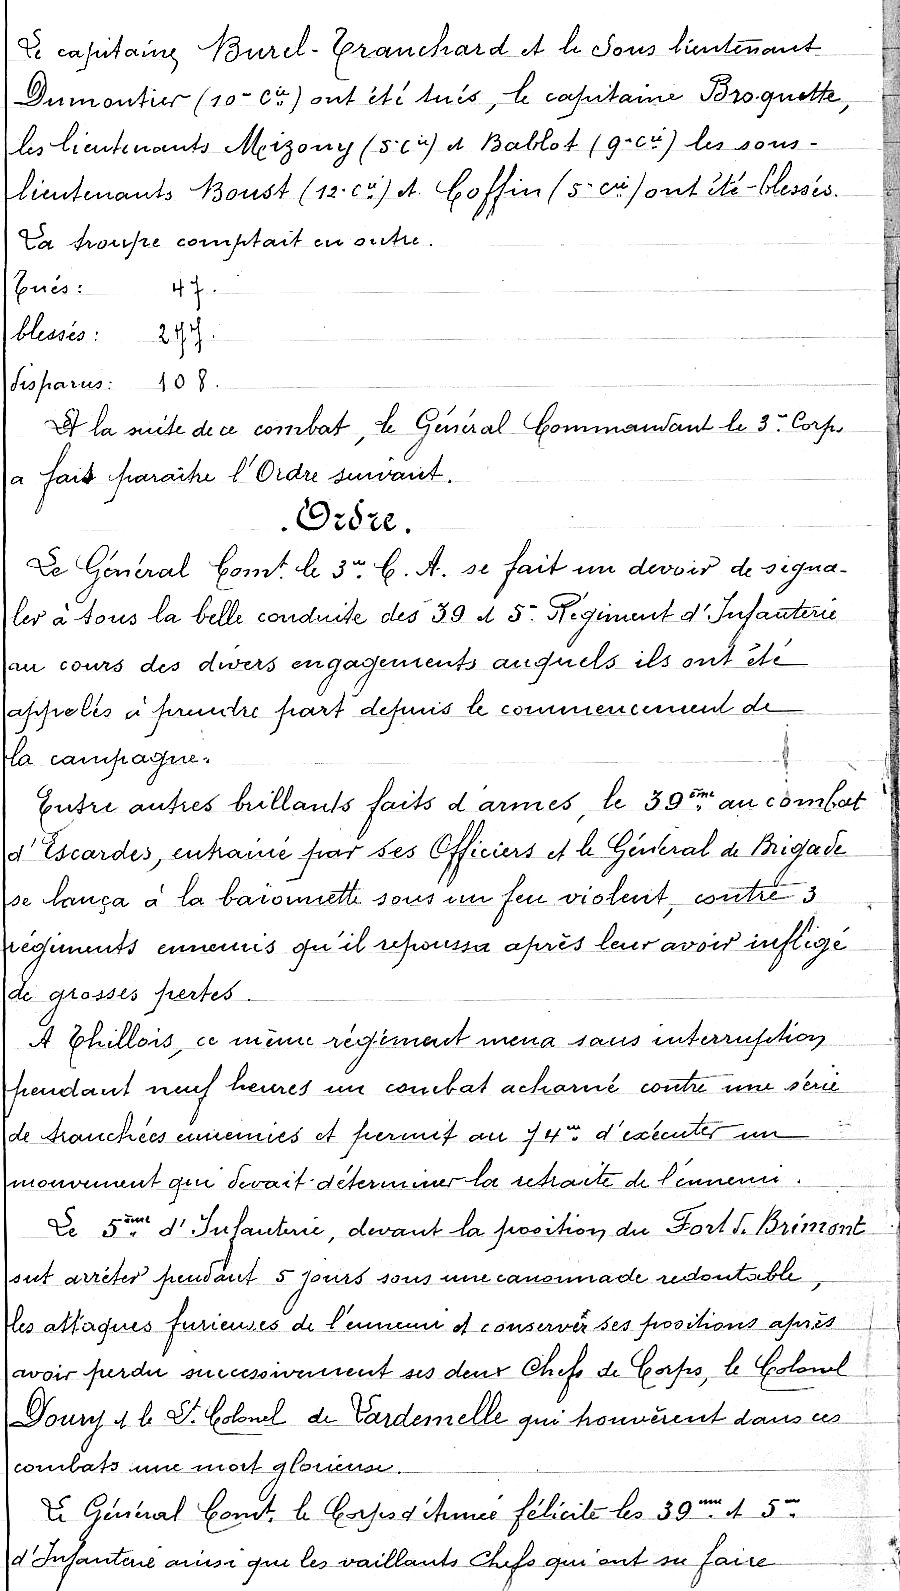 Le capitaine Burel-Tranchard et le Sous lieutenant
Dumontier (10e Cie) ont été tués, le capitaine Broquette,
les lieutenants Meizony (5e Cie) et Bablot (9e Cie) les sous-
lieutenants Boust (12e Cie) et Coffin (5e Cie) ont été blessés.
La troupe comptait en outre.
Tués: 47.
blessés: 277.
disparus: 108.
A la suite de ce combat, le Général Commandant le 3e Corps
a fait paraître l'Ordre suivant.
.Ordre.
Le Général Comt. le 3me C. A. se fait un devoir de signa-
ler à tous la belle conduite des 39 et 5e Régiment d'Infanterie
au cours des divers engagements auquels ils ont été
appelés à prendre part depuis le commencement de
la campagne.
Entre autres brillants faits d'armes, le 39ème au combat
d'Escardes, entrainé par ses Officiers et le Général de Brigade
se lança à la baïonnette sous un feu violent, contre 3
régiments ennemis qu'il repoussa après leur avoir infligé
de grosses pertes.
A Thillois, ce même régiment mena sans interruption
pendant neuf heures un combat acharné contre une série
de tranchées ennemies et permit au 74me d'exécuter un
mouvement qui devait déterminer la retraite de l'ennemi.
Le 5ème d'Infanterie, devant la position du Fort d. Brimont
sut arrêter pendant 5 jours sous une canonnade redoutable,
les attaques furieuses de l'ennemi et conserver ses positions après
avoir perdu successivement ses deux Chefs de Corps, le Colonel
Doury et le Lt. Colonel de Vardemelle qui trouvèrent dans ces
combats une mort glorieuse.
Le Général Comt. le Corps d'Armée félicite les 39me et 5me
d'Infanterie ainsi que les vaillants Chefs qui ont su faire